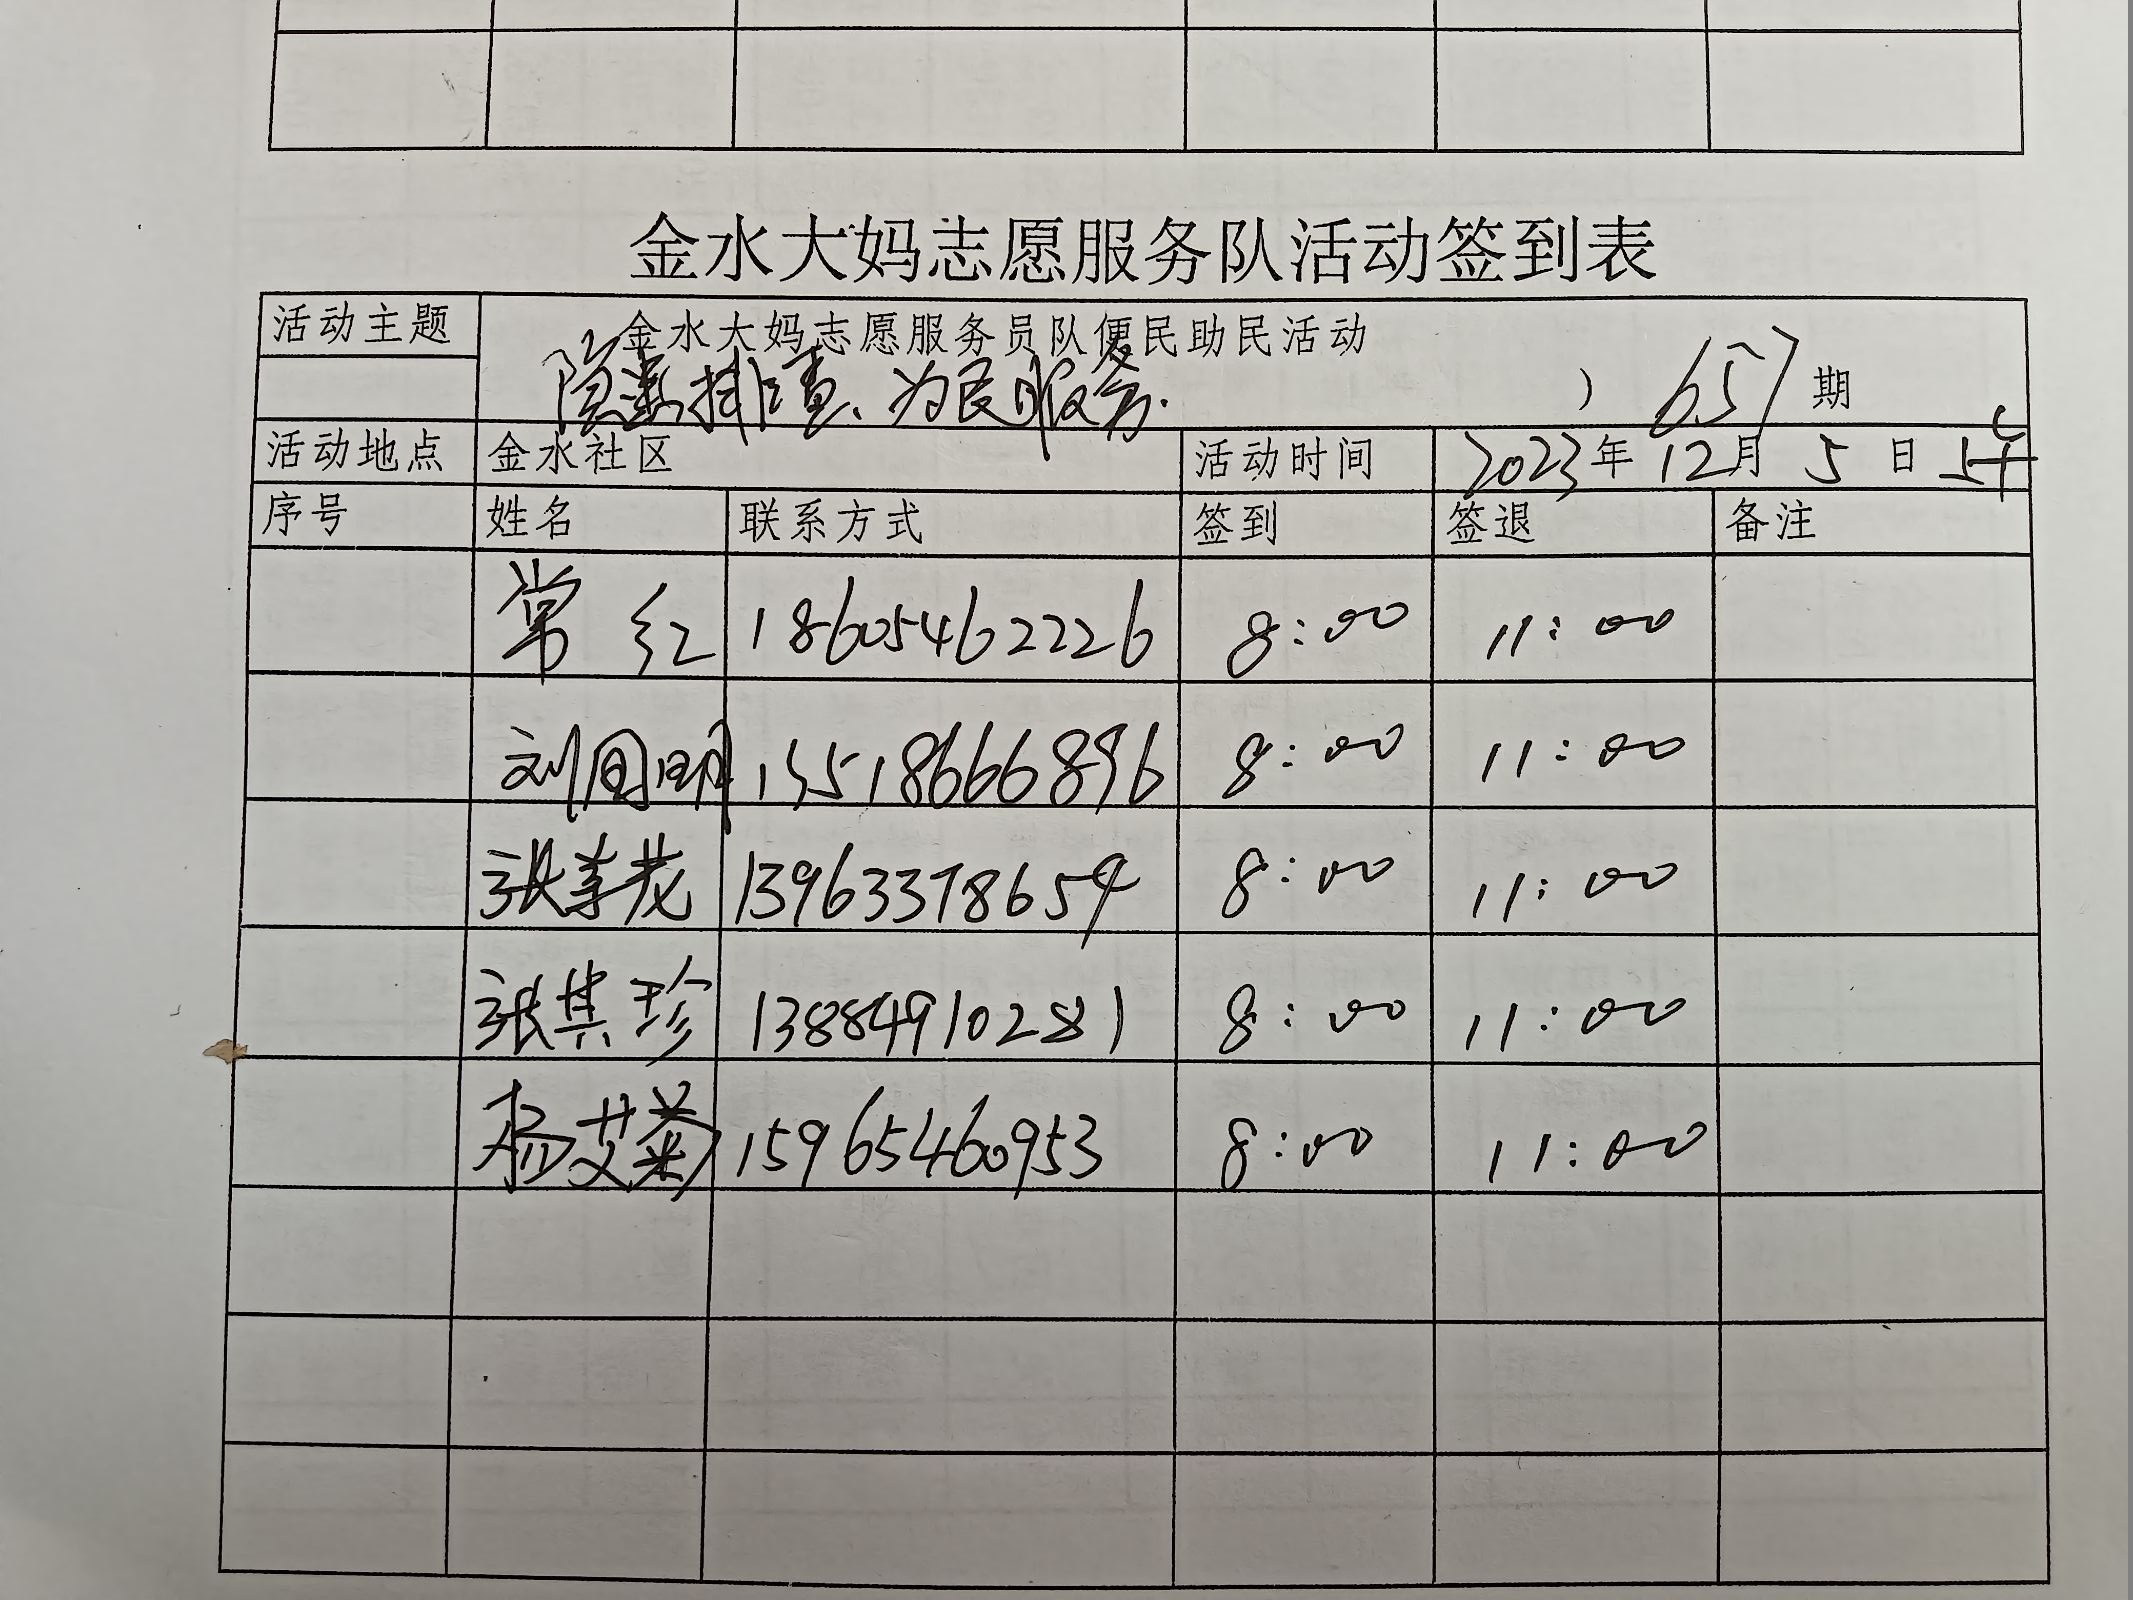 金水大妈志愿服务队活动签到表
活动主题 金水大妈志愿服务员队便民助民活动
隐患排查、为民服务. ) 657 期
活动地点 金水社区 活动时间 2023年12月5日上午
序号 姓名 联系方式 签到 签退 备注
常红 18605462226 8:00 11:00
刘同明 13518666896 8:00 11:00
张 13963378654 8:00 11:00
张其珍 13884910281 8:00 11:00
杨艾菊 15965460953 8:00 11:00